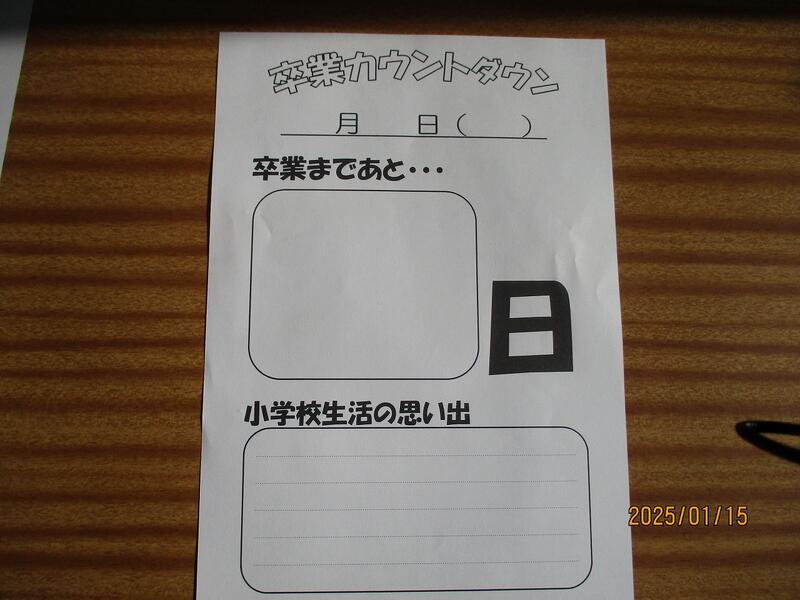 卒業カウントダウン
月　　日（　　）
卒業まであと・・・
日
小学校生活の思い出
2025/01/15